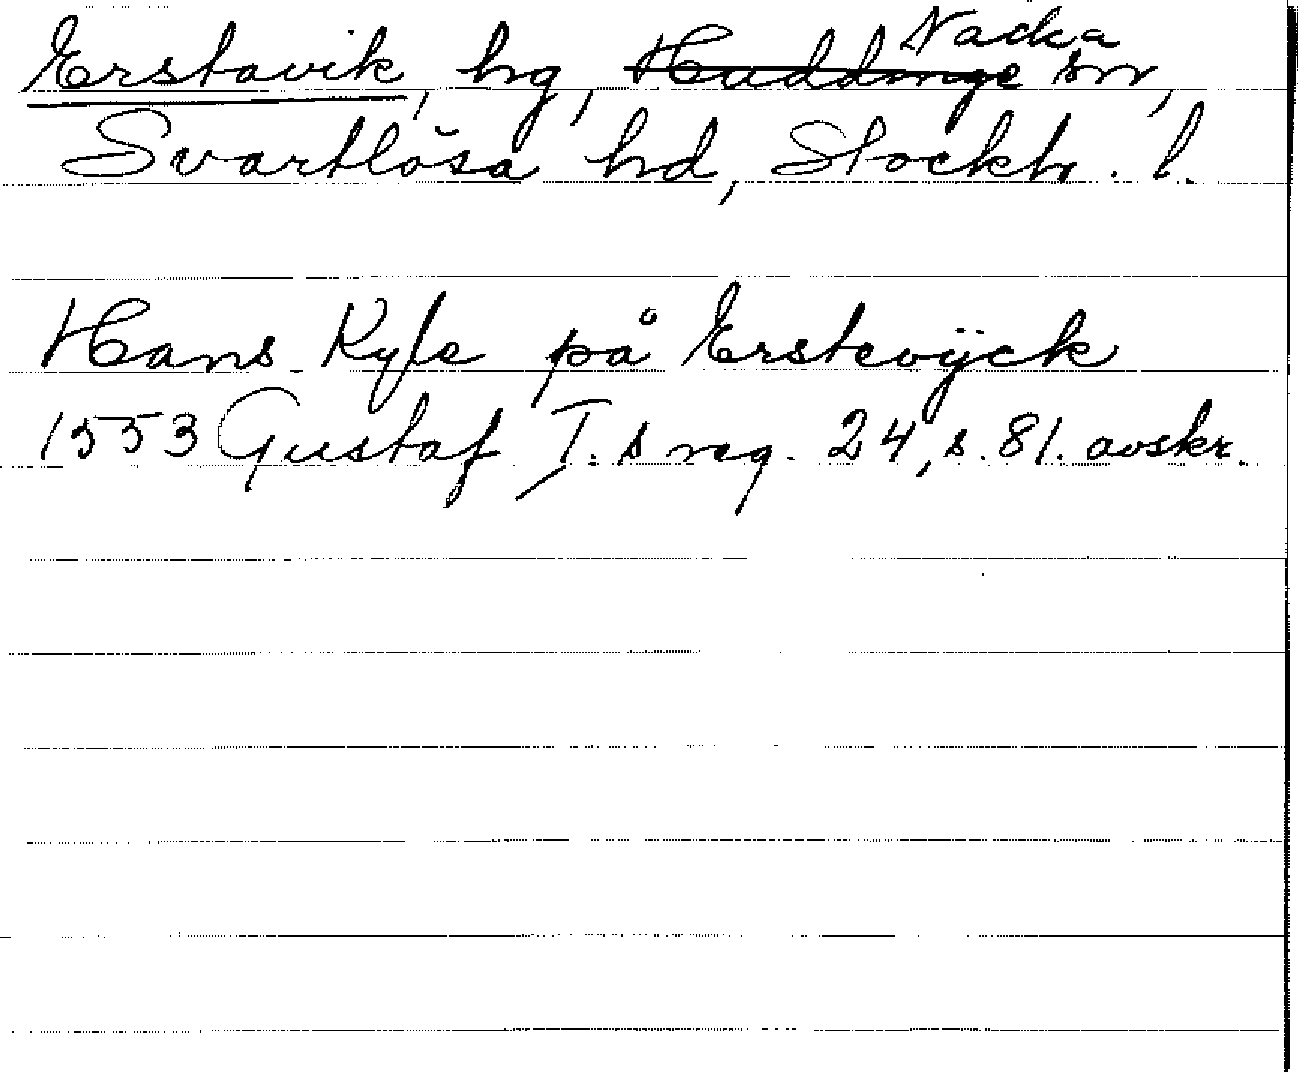 Erstavik, hg, Huddinge Nacka sn,
Svartlösa hd, Stockh. l.
Hans Kyle på Erstevÿck
1553 Gustaf I. s reg. 24, s. 81. avskr.